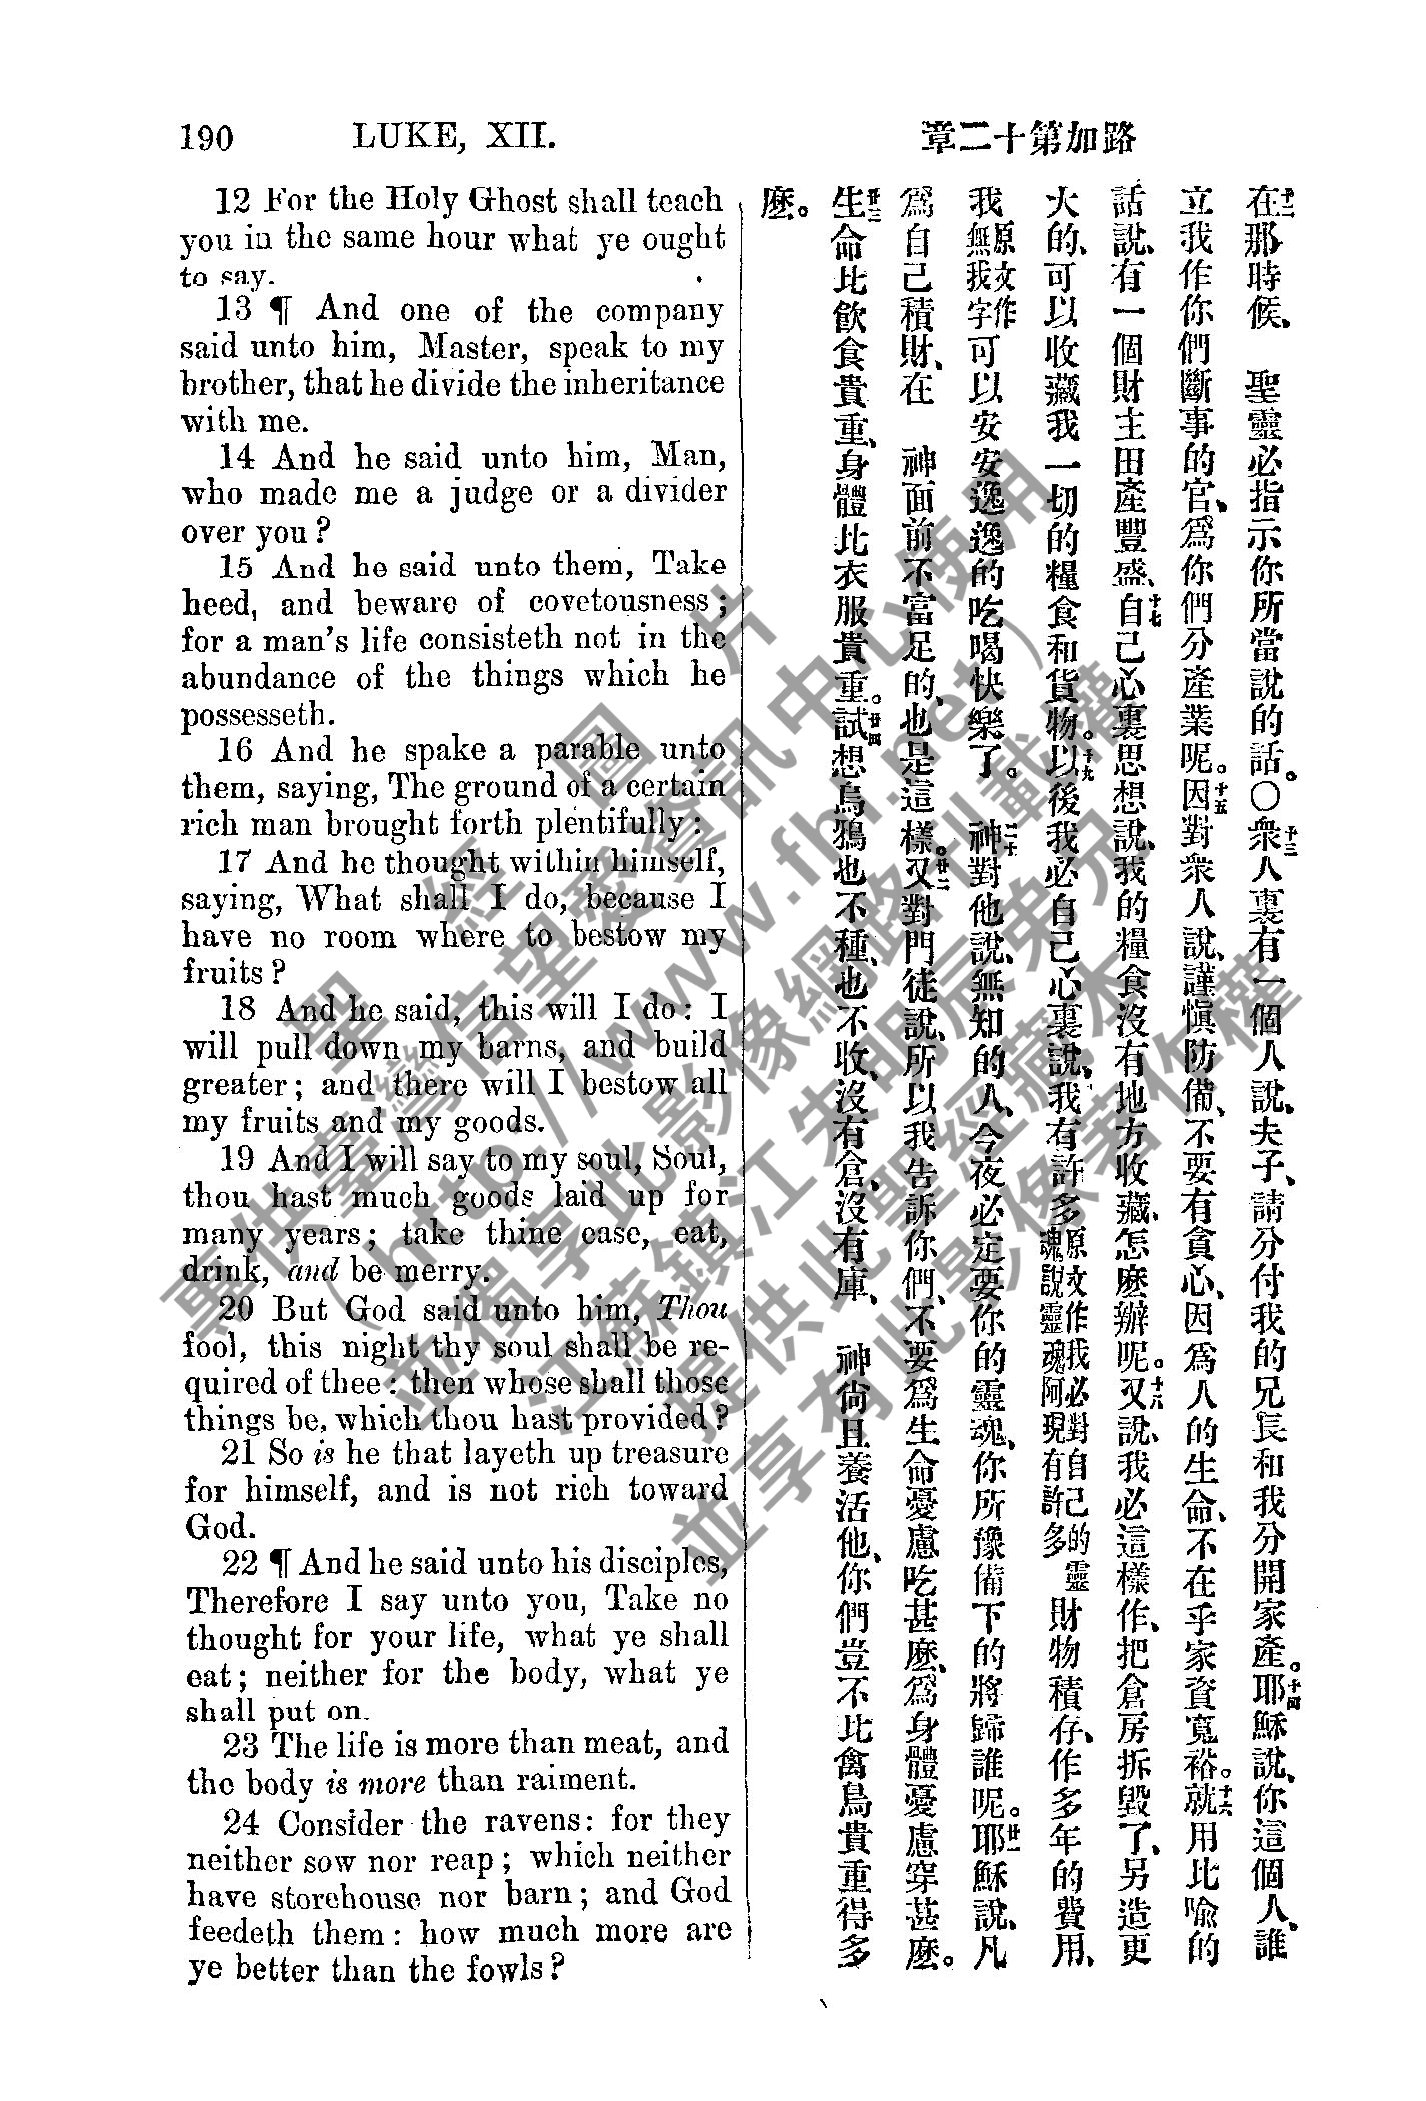 190 LUKE, XII. 章二十第加路
12 For the Holy Ghost shall teach
you in the same hour what ye ought
to say.
13 ¶ And one of the company
said unto him, Master, speak to my
brother, that he divide the inheritance
with me.
14 And he said unto him, Man,
who made me a judge or a divider
over you?
15 And he said unto them, Take
heed, and beware of covetousness;
for a man's life consisteth not in the
abundance of the things which he
possesseth.
16 And he spake a parable unto
them, saying, The ground of a certain
rich man brought forth plentifully:
17 And he thought within himself,
saying, What shall I do, because I
have no room where to bestow my
fruits?
18 And he said, this will I do: I
will pull down my barns, and build
greater; and there will I bestow all
my fruits and my goods.
19 And I will say to my soul, Soul,
thou hast much goods laid up for
many years; take thine ease, eat,
drink, and be merry.
20 But God said unto him, Thou
fool, this night thy soul shall be re-
quired of thee: then whose shall those
things be, which thou hast provided?
21 So is he that layeth up treasure
for himself, and is not rich toward
God.
22 ¶ And he said unto his disciples,
Therefore I say unto you, Take no
thought for your life, what ye shall
eat; neither for the body, what ye
shall put on.
23 The life is more than meat, and
the body is more than raiment.
24 Consider the ravens: for they
neither sow nor reap; which neither
have storehouse nor barn; and God
feedeth them: how much more are
ye better than the fowls?
十二在那時候、 聖靈必指示你所當說的話。〇十三衆人裏有一個人說、夫子、請分付我的兄長和我分開家產。十四耶穌說、你這個人、誰
立我作你們斷事的官、爲你們分產業呢。十五因對衆人說、謹愼防備、不要有貪心、因爲人的生命、不在乎家資寬裕。十六就用比喩的
話說、有一個財主田產豐盛、十七自己心裏思想說、我的糧食沒有地方收藏、怎麽辦呢。十八又說、我必這樣作、把倉房拆毀了、另造更
大的、可以收藏我一切的糧食和貨物。十九以後我必自己心裏說、我有許多原文作我必對自己的靈魂說靈魂阿現有許多財物積存、作多年的費用、
我原文作無我字可以安安逸逸的吃喝快樂了。 二十神對他說、無知的人、今夜必定要你的靈魂、你所豫備下的將歸誰呢。廿一耶穌說、凡
爲自己積財、在 神面前不富足的、也是這樣。廿二又對門徒說、所以我告訴你們、不要爲生命憂慮吃甚麽、爲身體憂慮穿甚麽。
廿三生命比飲食貴重、身體比衣服貴重。廿四試想烏鴉也不種、也不收、沒有倉、沒有庫、 神尙且養活他、你們豈不比禽鳥貴重得多
麽。
聖經圖片
惠供臺灣信望愛資訊中心使用
(http://www.fhl.net)
並獨享此影像網路刊載權
江蘇鎮江朱明辰弟兄
提供此聖經藏本
並享有此影像著作權